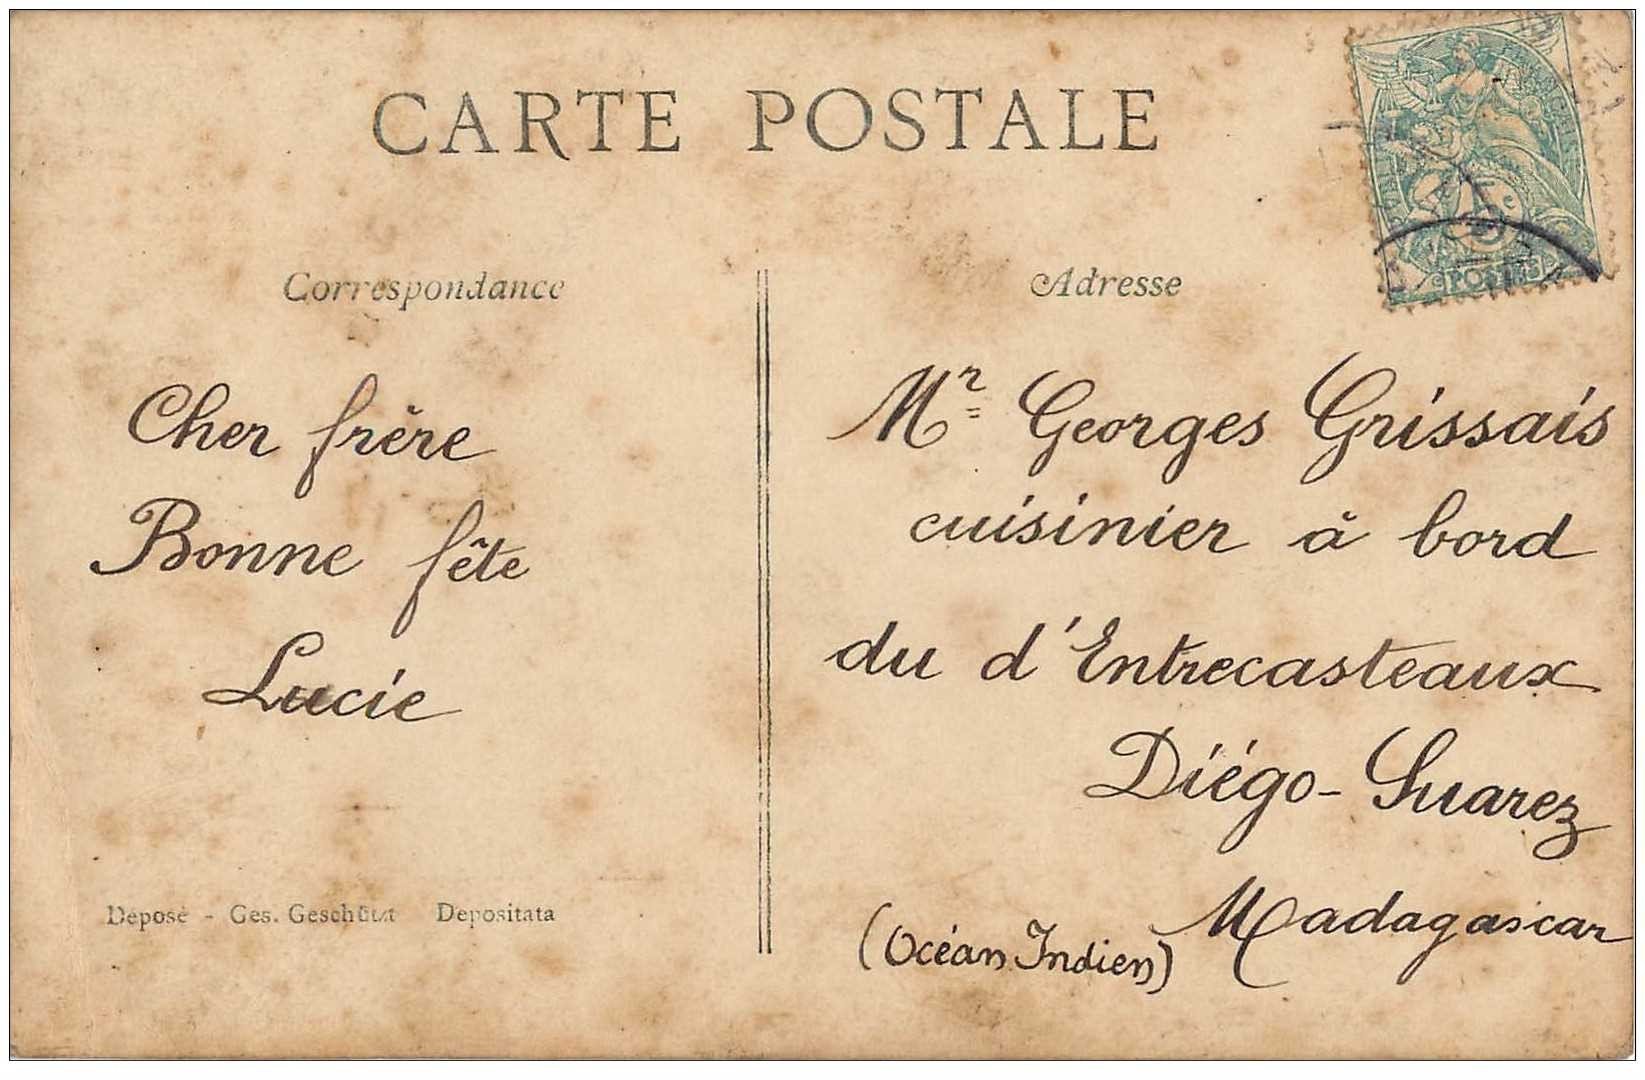 CARTE POSTALE
Correspondance
Adresse
Cher frère
Bonne fête
Lucie
Mr Georges Grissais
cuisinier à bord
du d'Entrecasteaux
Diégo-Suarez
Madagascar
(Océan Indien)
Déposé - Ges. Geschützt Depositata
5c
POSTES